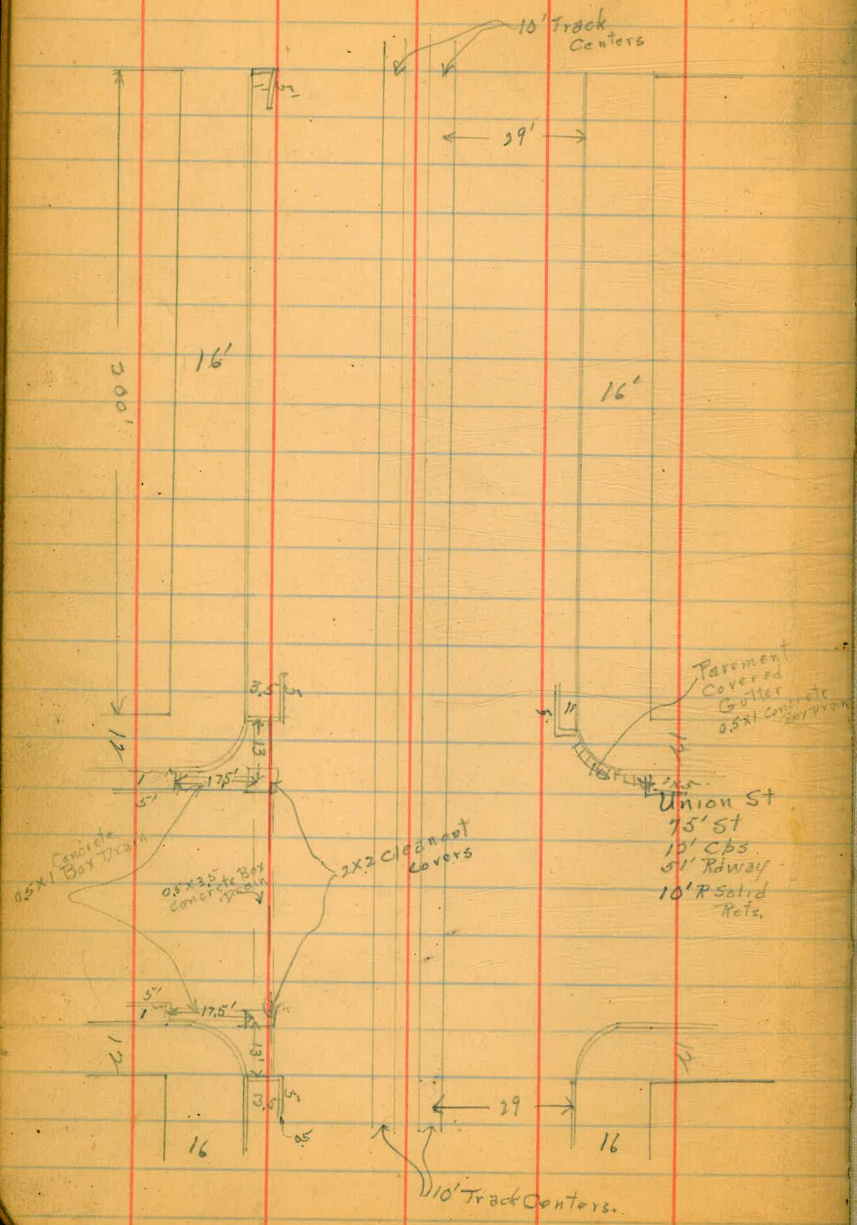 10' Track
Centers
29'
200'
16'
16'
Pavement
Covered
Gutter
0.5x1 Concrete
Box Drain
3.5
5
13
12
12
1
17.5'
5'
Union St
75' St
12' Cbs
51' Rdway
10' R Solid
Rets.
Concrete
0.5x1 Box Drain
0.5x3.5
Concrete Box
Drain
2x2 Cleanout
Covers
5'
1
17.5'
13'
12
12
3.5
5
0.5
29
16
16
10' Track Centers.